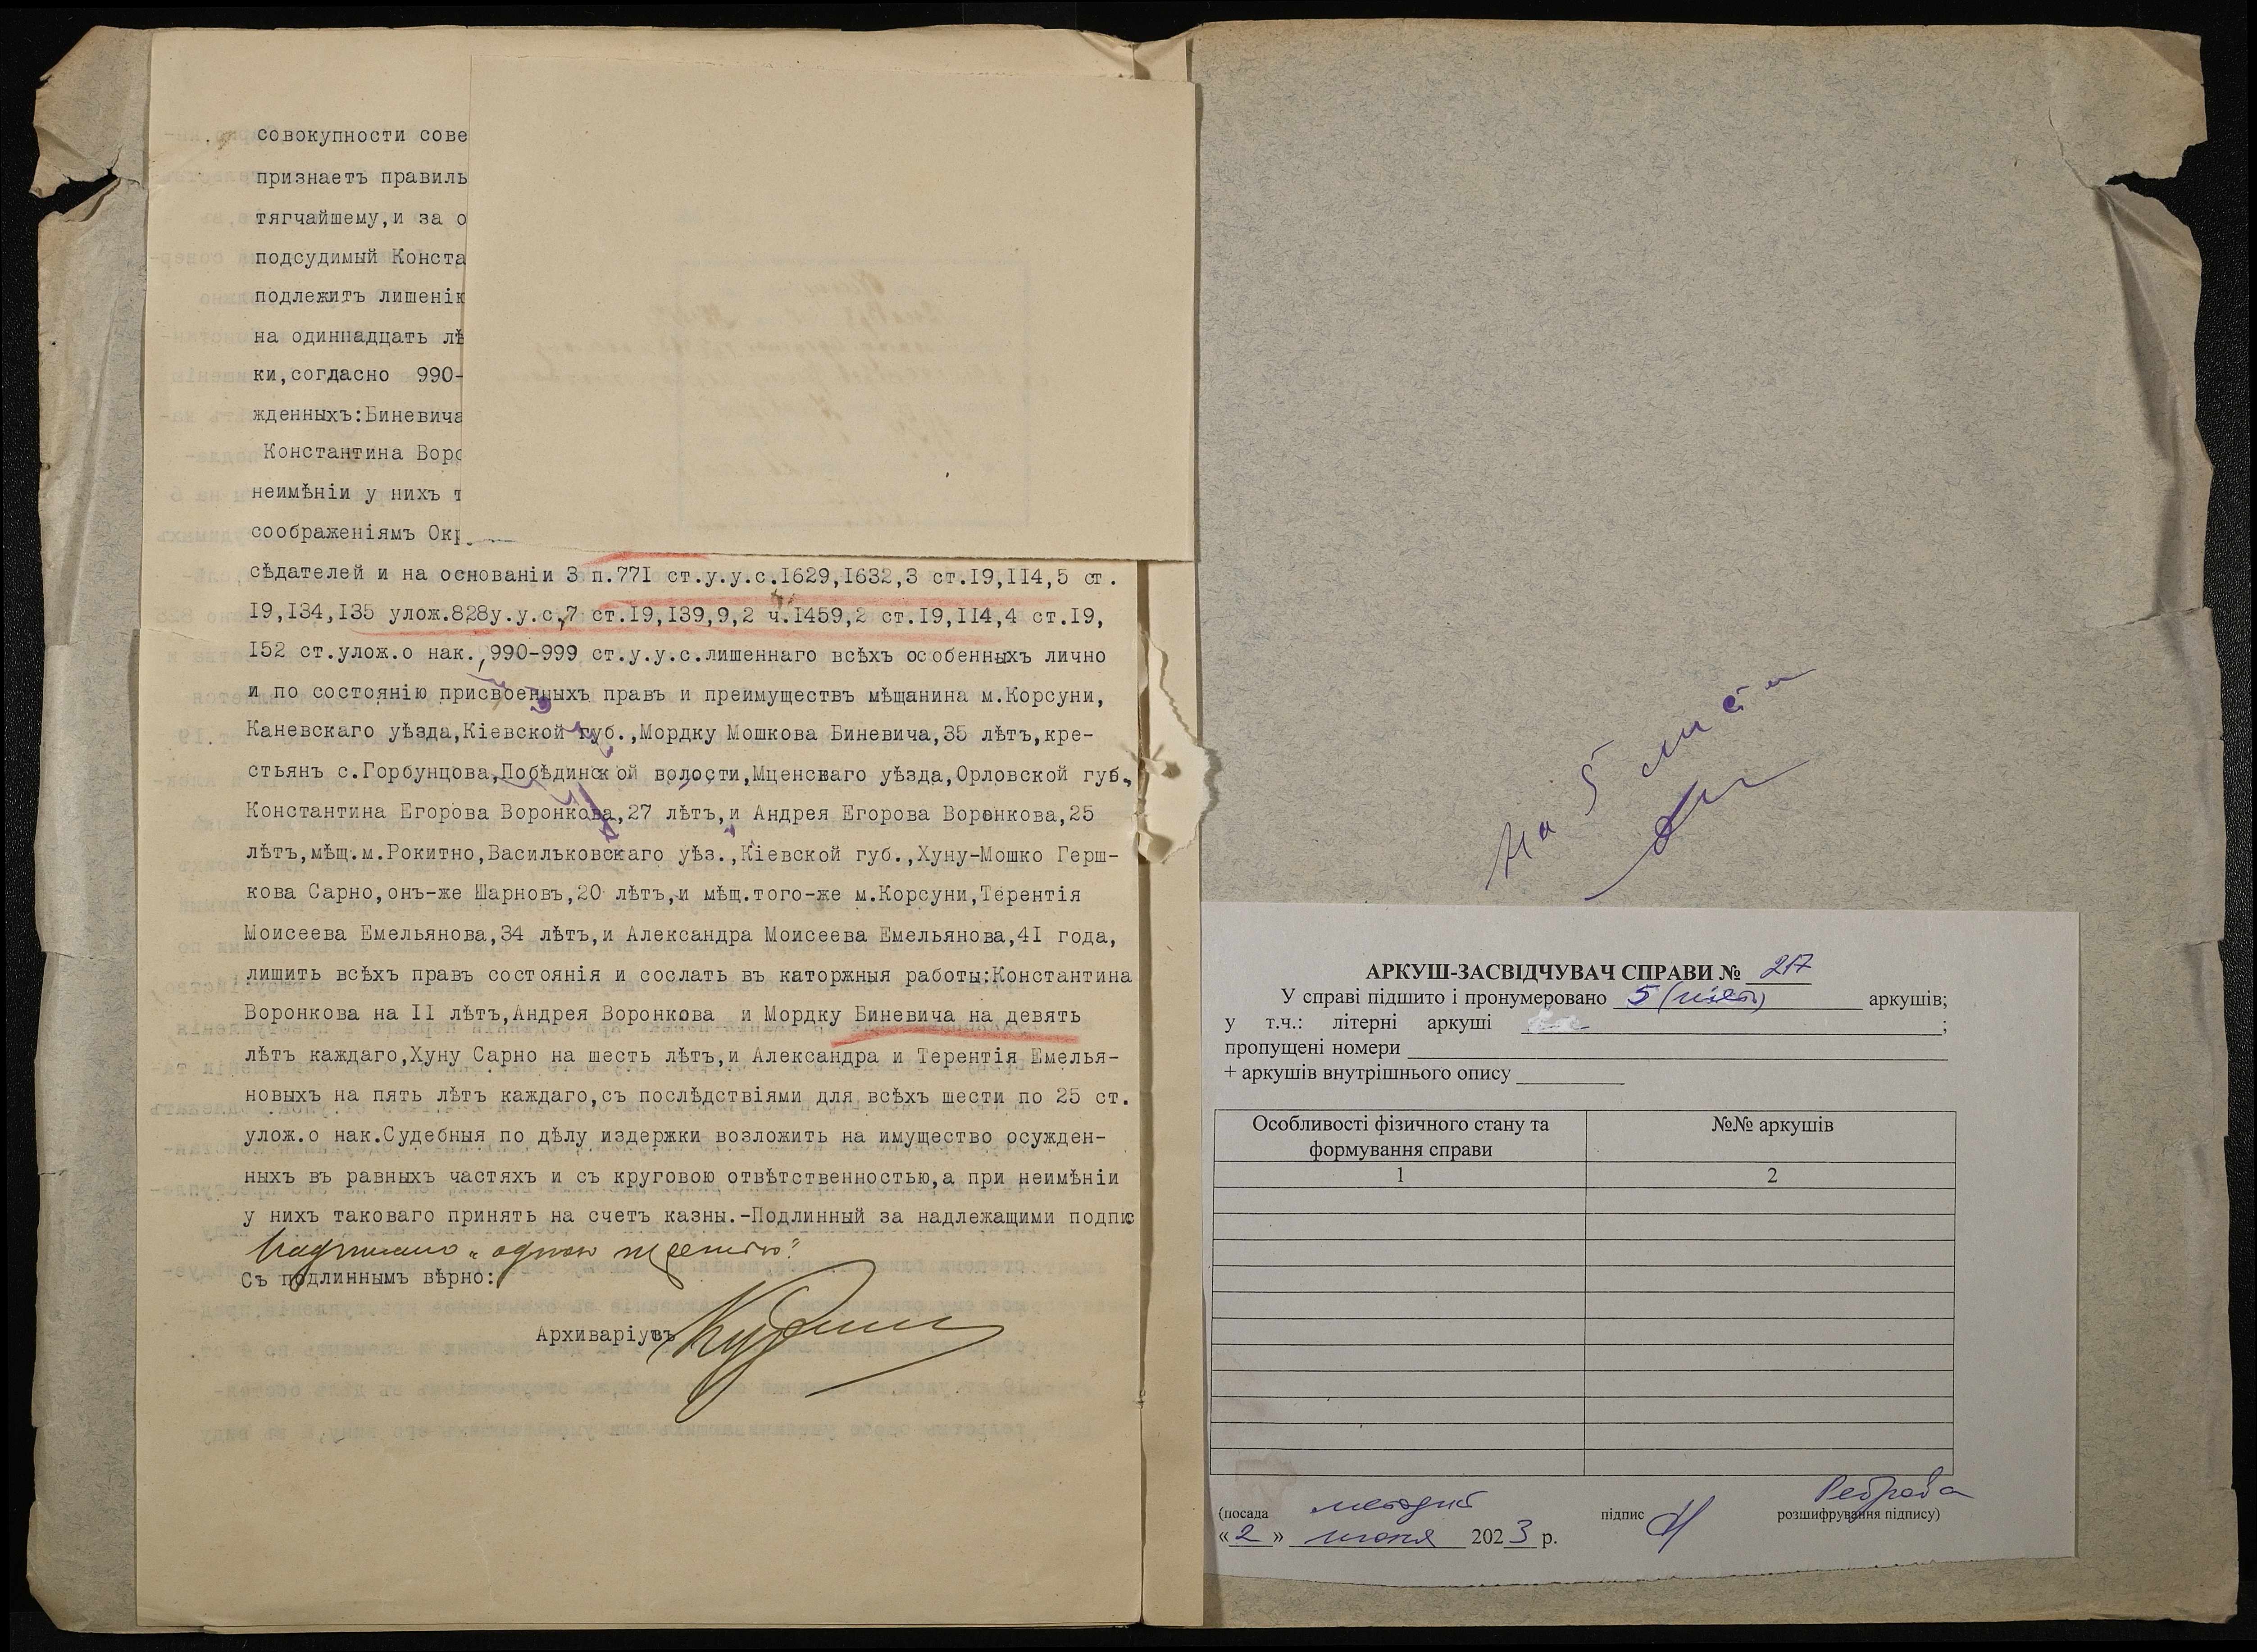 совокупности сове
признаетъ правиль
тягчайшему,и за о
подсудимый Конста
подлежитъ лишенію
на одиннадцать лѣ
ки,согдасно 990-
жденныхъ:Биневича
Константина Воро
неимѣніи у нихъ т
соображеніямъ Окр
сѣдателей и на основаніи 3 п.771 ст.у.у.с.1629,1632,3 ст.19,114,5 ст.
19,134,135 улож.828у.у.с,7 ст.19,139,9,2 ч.1459,2 ст.19,114,4 ст.19,
152 ст.улож.о нак.,990-999 ст.у.у.с.лишеннаго всѣхъ особенныхъ лично
и по состоянію присвоенныхъ правъ и преимуществъ мѣщанина м.Корсуни,
Каневскаго уѣзда,Кіевской губ.,Мордку Мошкова Биневича,35 лѣтъ,кре-
стьянъ с.Горбунцова,Побѣдинской волости,Мценскаго уѣзда,Орловской губ.,
Константина Егорова Воронкова,27 лѣтъ,и Андрея Егорова Воронкова,25
лѣтъ,мѣщ.м.Рокитно,Васильковскаго уѣз.,Кіевской губ.,Хуну-Мошко Герш-
кова Сарно,онъ-же Шарновъ,20 лѣтъ,и мѣщ.того-же м.Корсуни,Терентія
Моисеева Емельянова,34 лѣтъ,и Александра Моисеева Емельянова,41 года,
лишить всѣхъ правъ состоянія и сослать въ каторжныя работы:Константина
Воронкова на 11 лѣтъ,Андрея Воронкова и Мордку Биневича на девять
лѣтъ каждаго,Хуну Сарно на шесть лѣтъ,и Александра и Терентія Емелья-
новыхъ на пять лѣтъ каждаго,съ послѣдствіями для всѣхъ шести по 25 ст.
улож.о нак.Судебныя по дѣлу издержки возложить на имущество осужден-
ныхъ въ равныхъ частяхъ и съ круговою отвѣтственностью,а при неимѣніи
у нихъ таковаго принять на счетъ казны.-Подлинный за надлежащими подпис
Съ подлиннымъ вѣрно:
Архиваріусъ
На 5 листа
АРКУШ-ЗАСВІДЧУВАЧ СПРАВИ № 217
У справі підшито і пронумеровано 5 (пять) аркушів;
у т.ч.: літерні аркуші ;
пропущені номери
+ аркушів внутрішнього опису
Особливості фізичного стану та формування справи
№№ аркушів
1
2
(посада методист підпис Реброва розшифрування підпису)
«2» июня 2023 р.